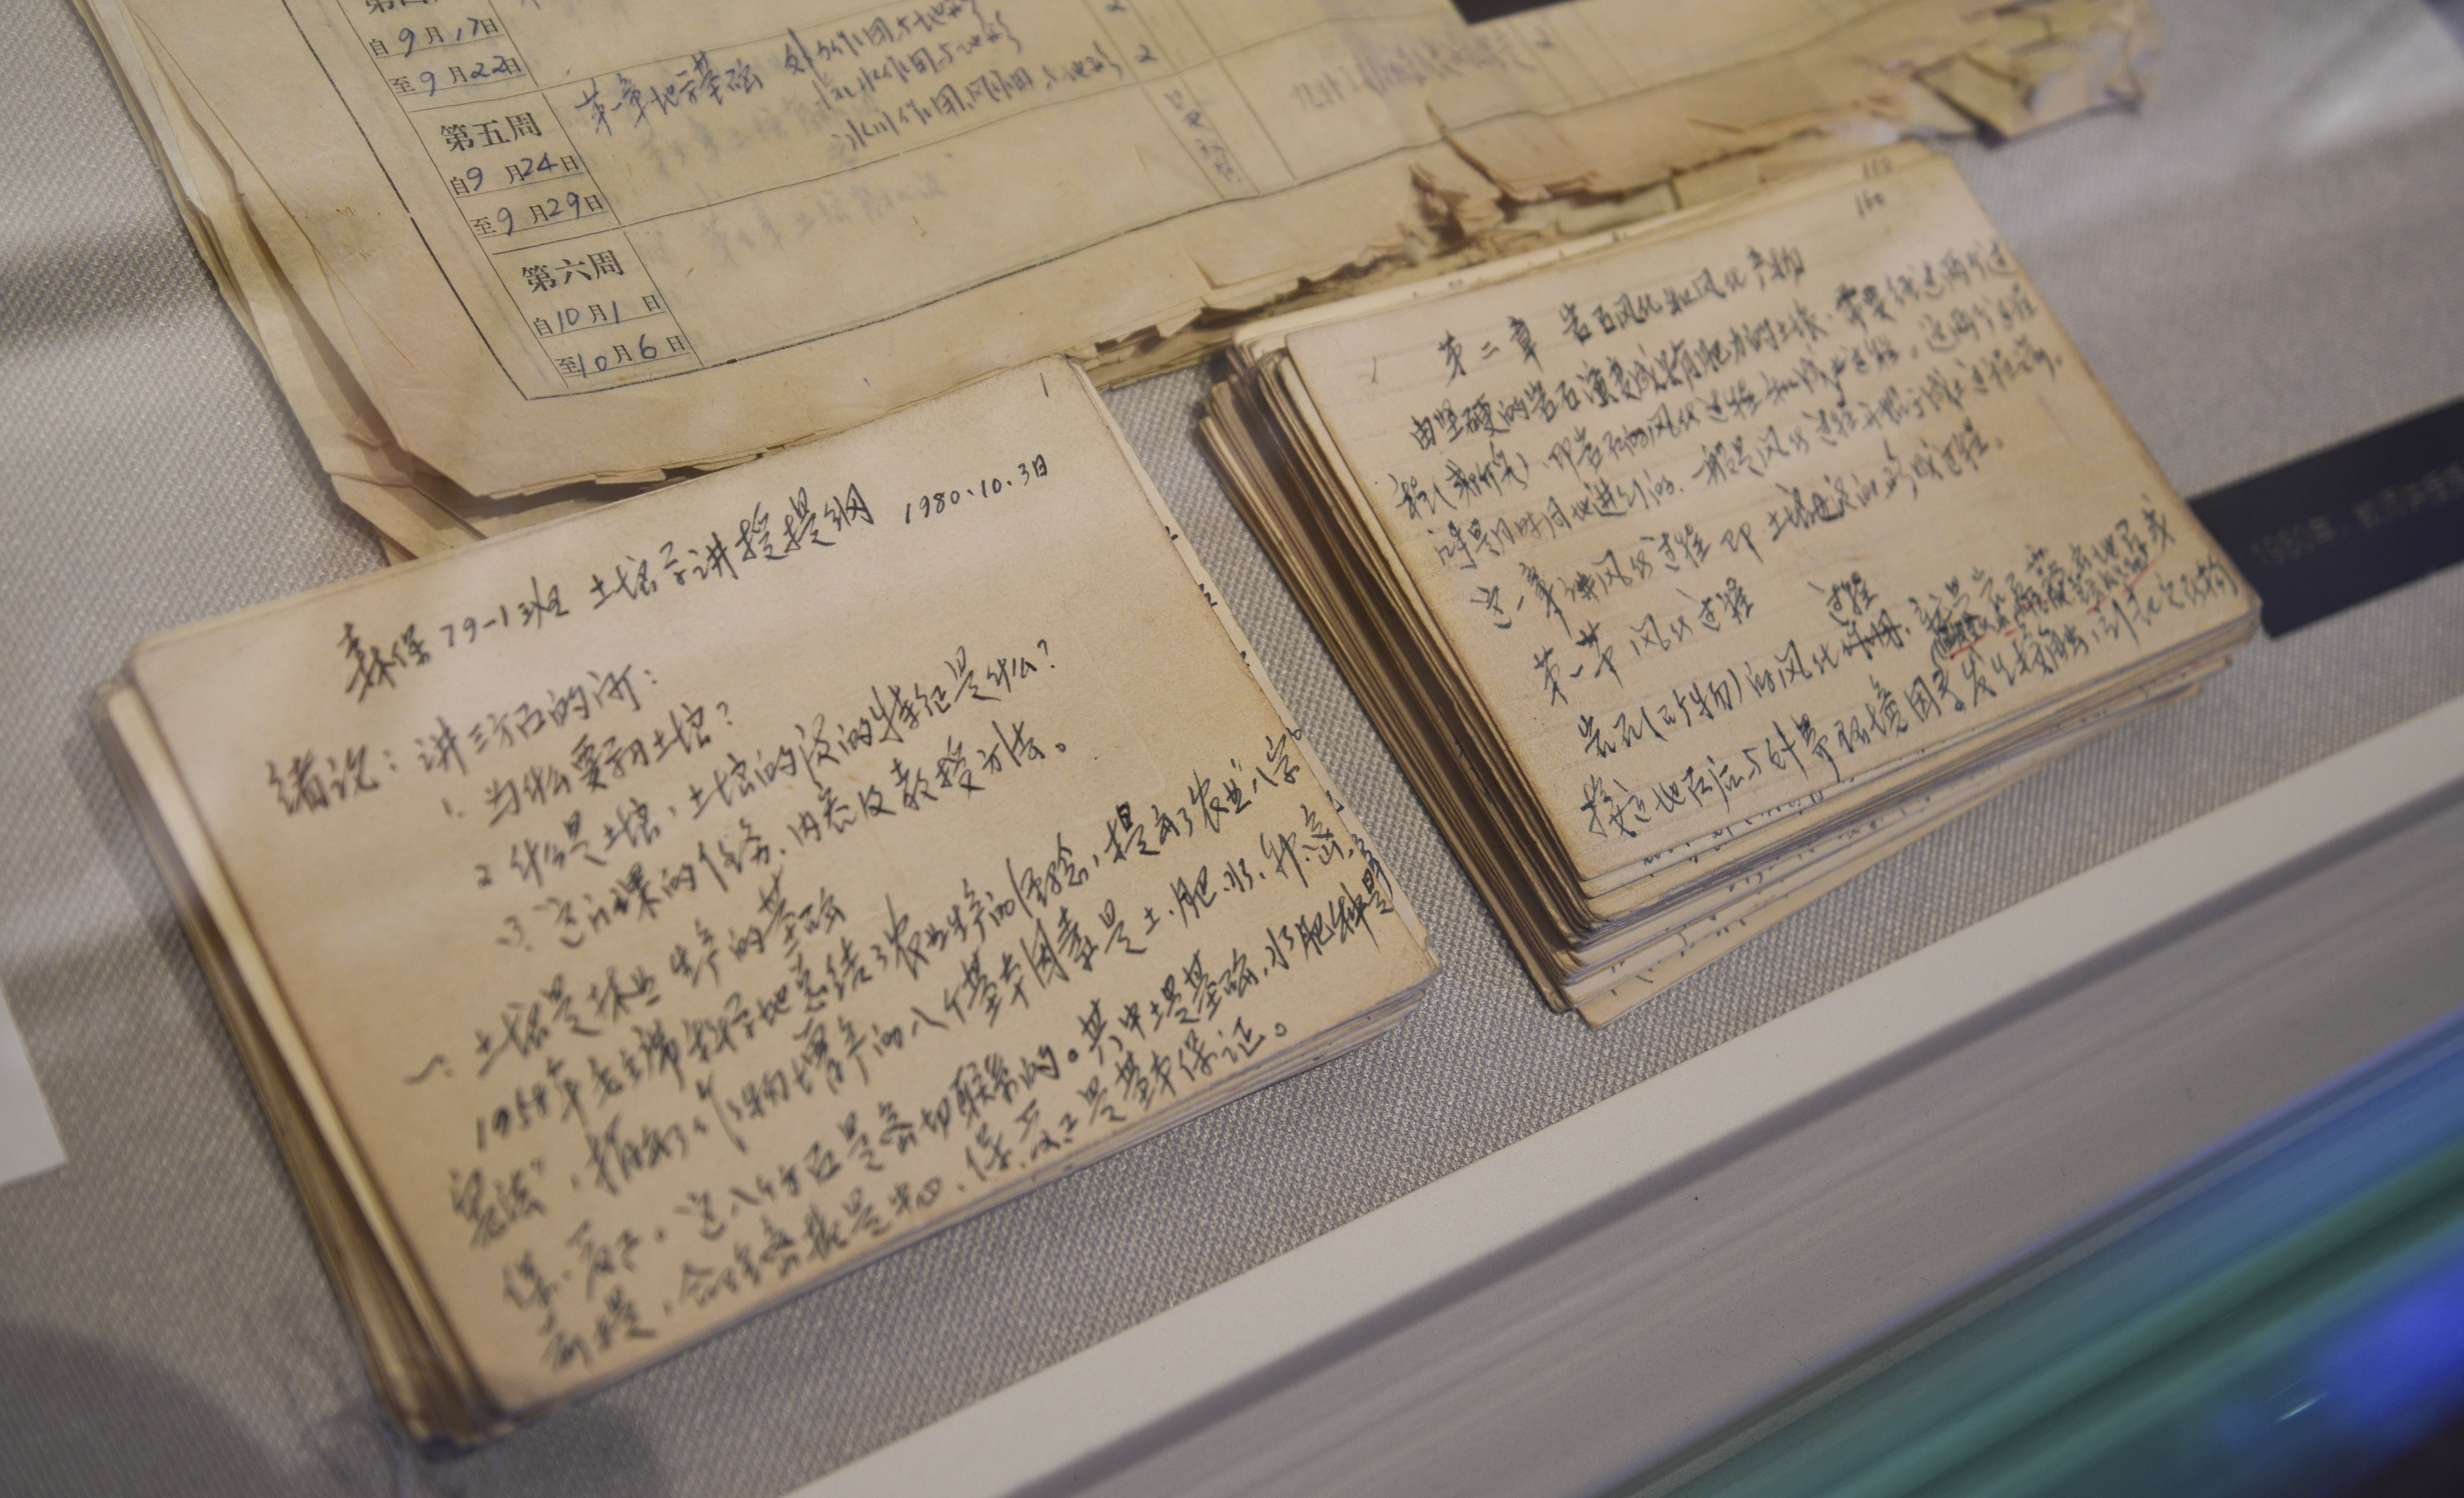 自9月17日
至9月22日
第五周
自9月24日
至9月29日
第六周
自10月1日
至10月6日
第一章地学基础 外力作用与地形
流水作用与地形
冰川作用、风作用与地形 2
1
森保79-1班 土壤学讲授提纲 1980.10.3日
绪论：讲三方面的问：
1. 为什么要学习土壤？
2 什么是土壤，土壤的本质的特征是什么？
3. 这门课的任务、内容及教授方法。
一. 土壤是林业生产的基础
1958年毛主席科学地总结了农业生产的经验，提出了农业“八字
宪法”，指出了作物增产的八个基本因素是土.肥.水.种.密.
保.管.工。这八个方面是密切联系的。其中土是基础，水肥种是
前提，合理密植是中心，保.管.工是基本保证。
160
第二章 岩石风化和风化产物
由坚硬的岩石演变成具有肥力的土壤，需要经过两个过
程，即岩石的风化过程和成土过程，这两个过程
是同时同地进行的，
这一章讲风化过程即土壤母质的形成过程。
第一节 风化过程
过程
岩石(矿物)的风化作用，就是
接近地面后与外界环境因素发生接触，引起它结构